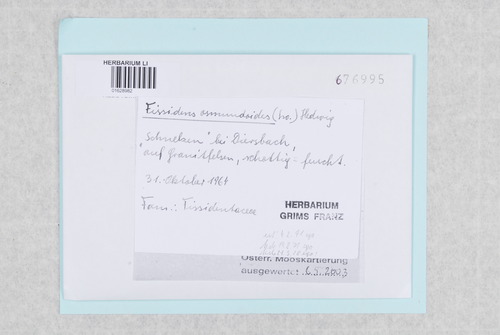 HERBARIUM LI
01628982
676995
Fissidens osmundoides (Sw.) Hedwig
bei Diersbach,
"auf Granitfelsen, schattig - feucht.
31. Oktober 1964
Fam.: Fissidentacea
HERBARIUM
GRIMS FRANZ
Österr. Mooskartierung
ausgewertet: 6.3.2003